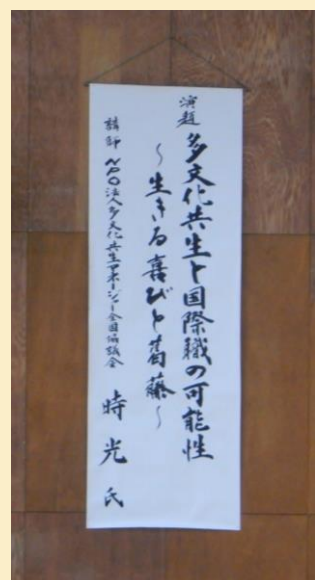 演題 多文化共生と国際職の可能性
～生きる喜びと葛藤～
講師 NPO法人多文化共生マネージャー全国協議会 時光氏